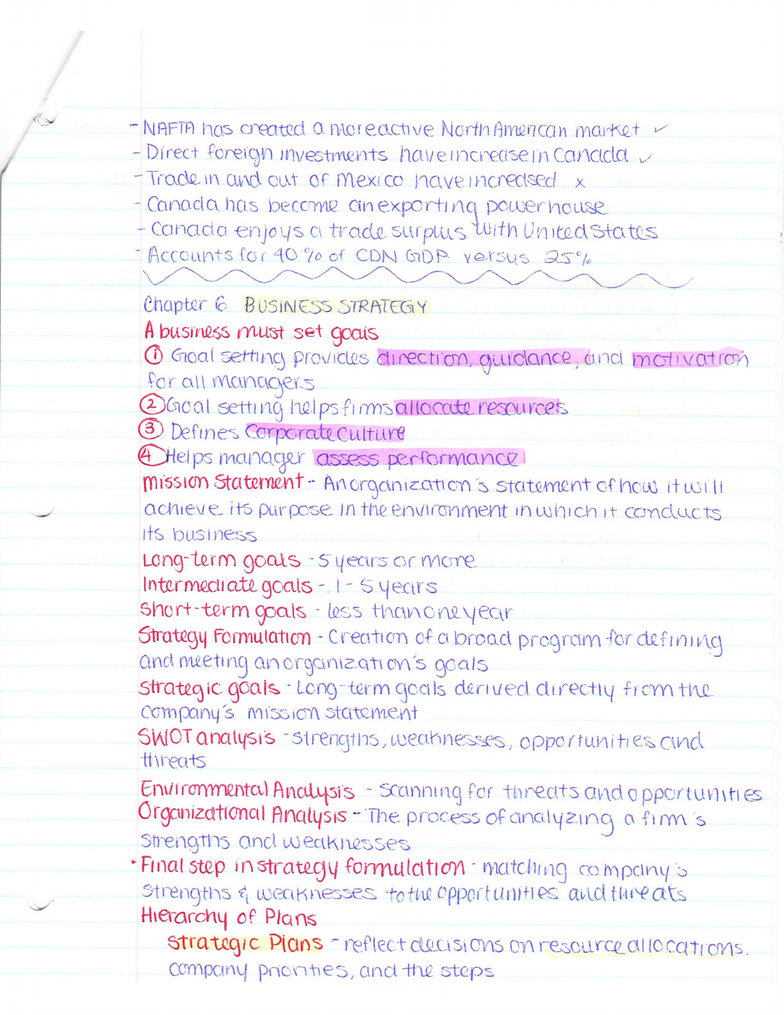 - NAFTA has created a more active North American market ✓
- Direct foreign investments have increase in Canada ✓
- Trade in and out of Mexico have increased x
- Canada has become an exporting powerhouse
- Canada enjoys a trade surplus with United States
- Accounts for 40% of CDN GDP versus 25%
Chapter 6 BUSINESS STRATEGY
A business must set goals
① Goal setting provides direction, guidance, and motivation
for all managers
② Goal setting helps firms allocate resources
③ Defines Corporate Culture
④ Helps manager assess performance
Mission Statement - An organization's statement of how it will
achieve its purpose in the environment in which it conducts
its business
Long-term goals - 5 years or more
Intermediate goals - 1-5 years
Short-term goals - less than one year
Strategy Formulation - Creation of a broad program for defining
and meeting an organization's goals
Strategic goals - Long-term goals derived directly from the
company's mission statement
SWOT analysis - strengths, weaknesses, opportunities and
threats
Environmental Analysis - scanning for threats and opportunities
Organizational Analysis - The process of analyzing a firm's
strengths and weaknesses
• Final step in strategy formulation - matching company's
strengths & weaknesses to the opportunities and threats
Hierarchy of Plans
Strategic Plans - reflect decisions on resource allocations,
company priorities, and the steps